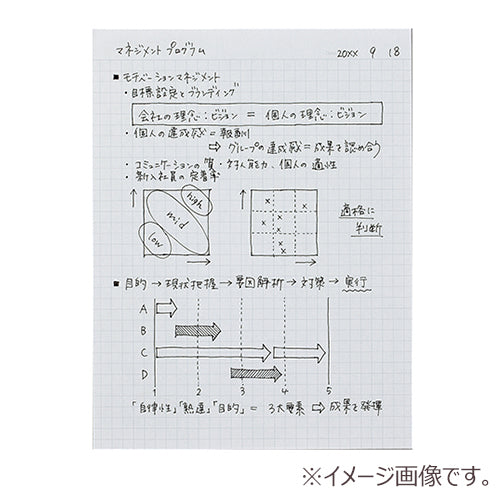 マネジメントプログラム 20XX 9 18
■ モチベーションマネジメント
・目標設定とブランディング
会社の理念:ビジョン = 個人の理念:ビジョン
・個人の達成感=報酬
⇨ グループの達成感=成果を認め合う
・コミュニケーションの質・対人能力、個人の適性
・新入社員の定着率
high
mid
low
x x x x x x
適格に
判断
■ 目的 → 現状把握 → 要因解析 → 対策 → 実行
A
B
C
D
1 2 3 4 5
「自律性」「熟達」「目的」= 3大要素 ⇨ 成果を発揮
※イメージ画像です。